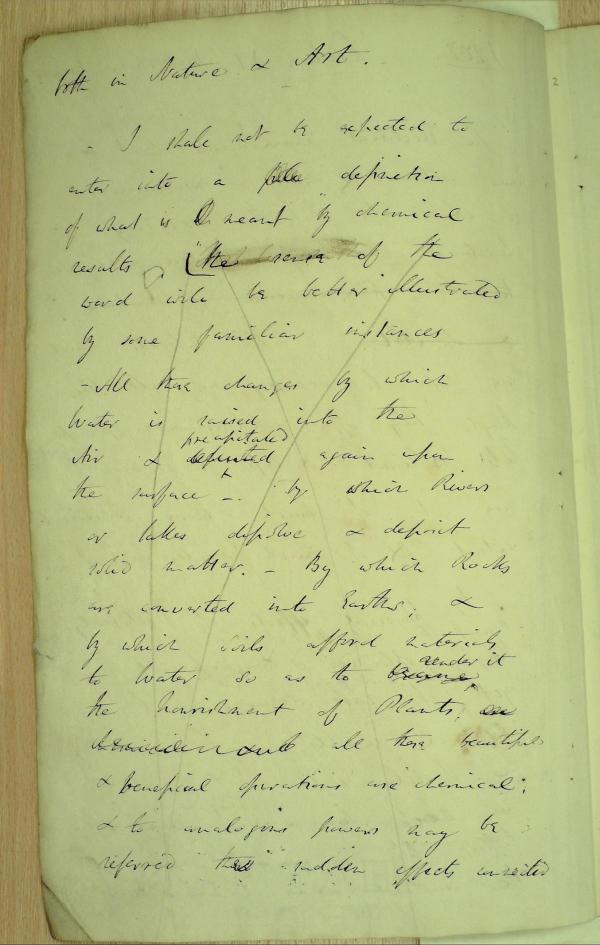 both in Nature & Art.
- I shall not be expected to
enter into a definition
of what is meant by chemical
results (the sense of the
word will be better illustrated
by some familiar instances
- All these changes by which
Water is raised into the
precipitated
Air & again upon
the surface - by which Rivers
or lakes dissolve & deposit
solid matter. - By which Rocks
are converted into Earths; &
by which soils afford materials
render it
to Water so as to
the nourishment of Plants;
all these beautiful
& beneficial operations are chemical;
& to analogous powers may be
referred the sudden effects